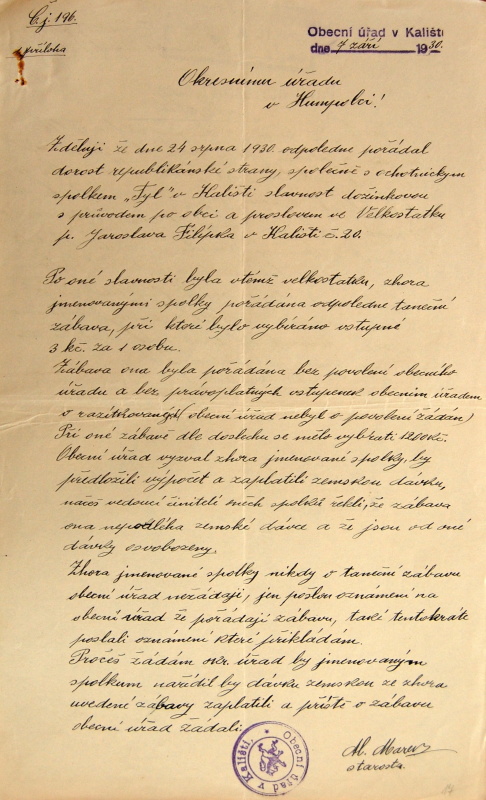 Č.j. 196.
1 příloha
Obecní úřad v Kališti
dne 7 září 1930.
Okresnímu úřadu
v Humpolci!
Zděluji že dne 24 srpna 1930. odpoledne pořádal
dorost republikánské strany, společně s ochotnickým
spolkem „Tyl" v Kališti slavnost dožinkovou
s průvodem po obci a proslovem ve Velkostatku
p. Jaroslava Filípka v Kališti č. 20.
Po oné slavnosti byla vtémž velkostatku, zhora
jmenovanými spolky pořádána odpoledne taneční
zábava, při které bylo vybíráno vstupné
3 kč. za 1 osobu.
Zábava ona byla pořádána bez povolení obecního
úřadu a bez právoplatných vstupenek obecním úřadem
orazítkovaných (obecní úřad nebyl o povolení žádán)
Při oné zábavě dle doslechu se mělo vybírati 1200 Kč.
Obecní úřad vyzval zhora jmenované spolky, by
předložili výpočet a zaplatili zemskou dávku,
načež vedoucí činitelé oněch spolků řekli, že zábava
ona nepodléha zemské dávce a že jsou od oné
dávky osvobozeny.
Zhora jmenované spolky nikdy o taneční zábavu
obecní úřad nežádají, jen pošlou oznámení na
obecní úřad že pořádají zábavu, také tentokráte
poslali oznámení které přikládám.
Pročež žádám okr. úřad by jmenovaným
spolkum nařídil by dávku zemskou ze zhora
uvedené zábavy zaplatili a příště o zábavu
obecní úřad žádali.
Obecní úřad v Kališti.
starosta.